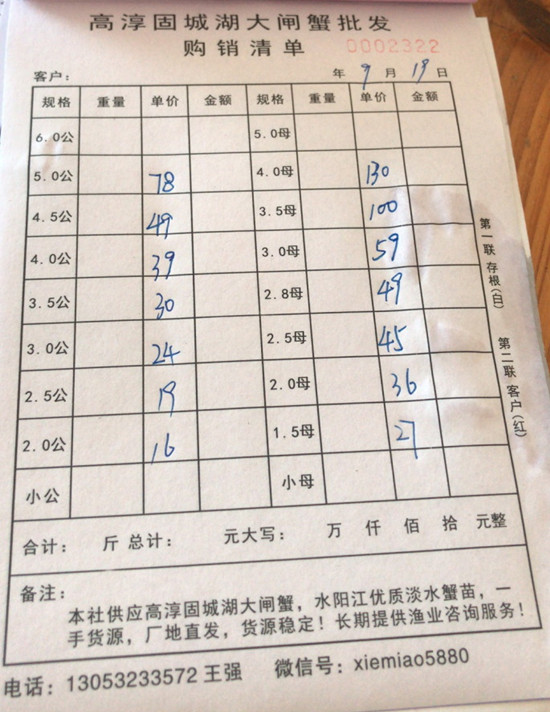 高淳固城湖大闸蟹批发
购销清单 0002322
客户： 年 9 月 19 日
规格 重量 单价 金额 规格 重量 单价 金额
6.0公 5.0母
5.0公 78 4.0母 130
4.5公 49 3.5母 100
4.0公 39 3.0母 59
3.5公 30 2.8母 49
3.0公 24 2.5母 45
2.5公 19 2.0母 36
2.0公 16 1.5母 27
小公 小母
合计： 斤 总计： 元大写： 万 仟 佰 拾 元整
备注：
本社供应高淳固城湖大闸蟹，水阳江优质淡水蟹苗，一
手货源，厂地直发，货源稳定！长期提供渔业咨询服务！
电话：13053233572 王强 微信号：xiemiao5880
第一联 存根(白)
第二联 客户(红)